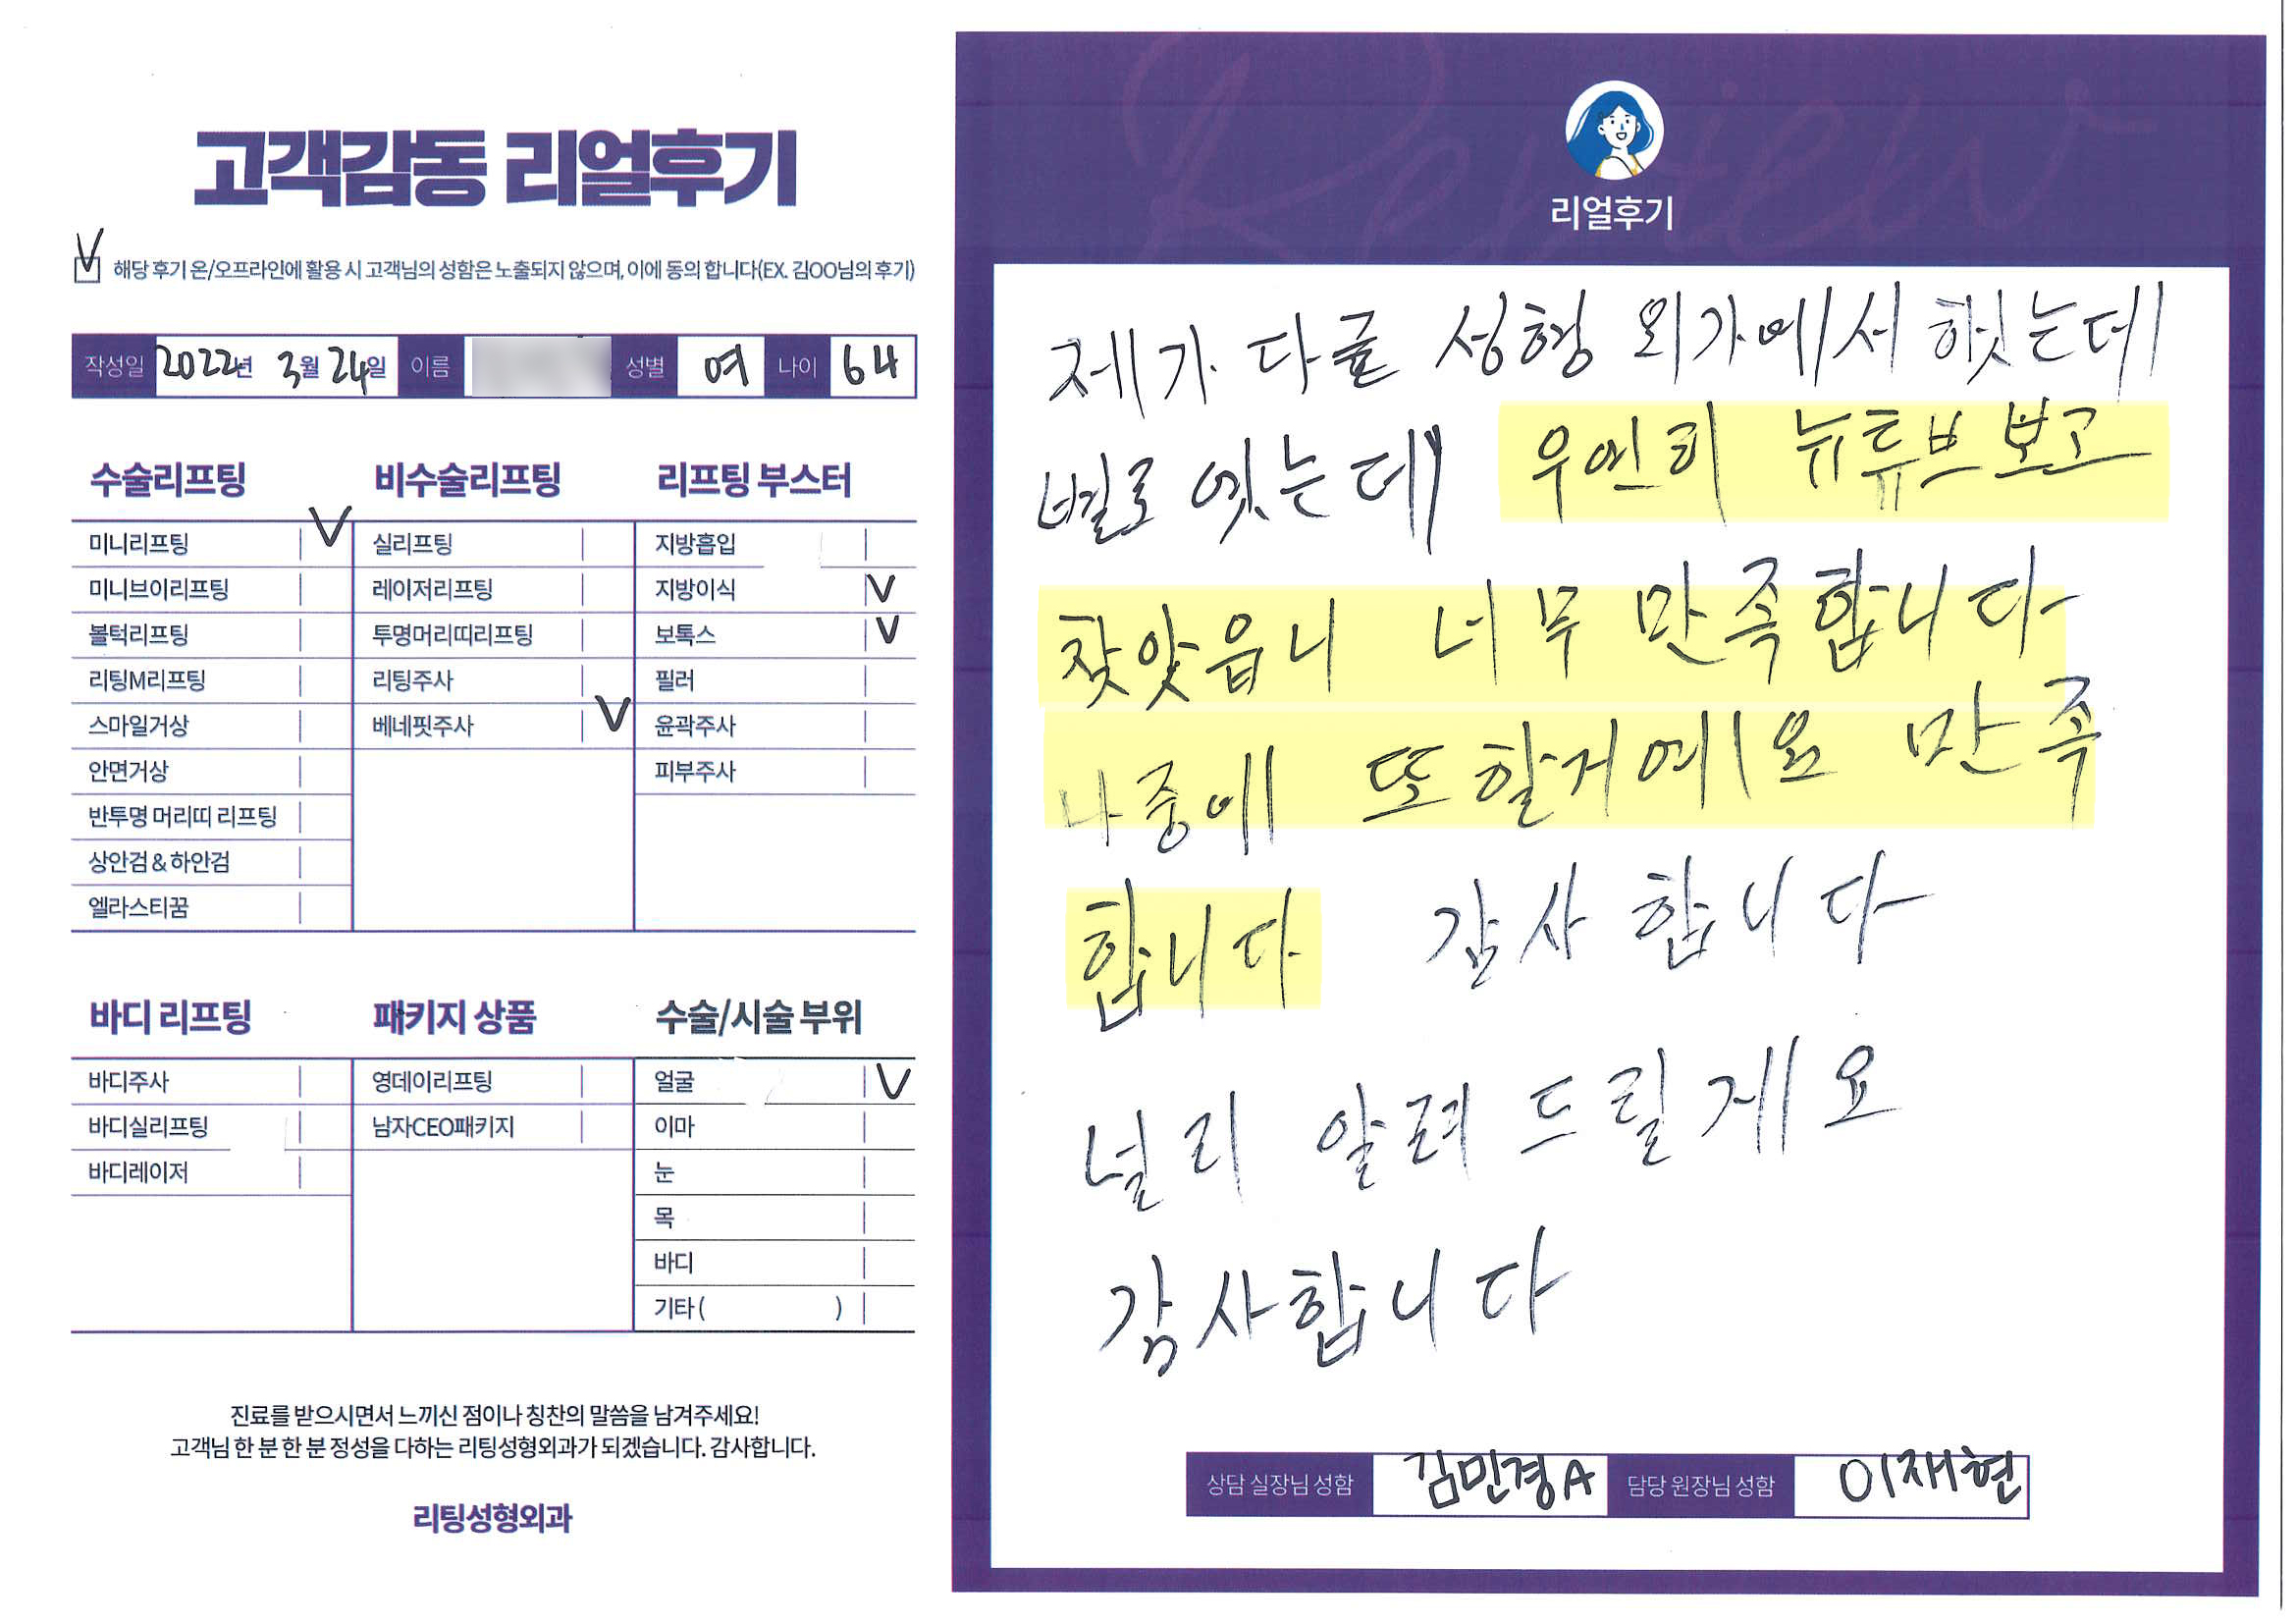 고객감동 리얼후기
V 해당 후기 온/오프라인에 활용 시 고객님의 성함은 노출되지 않으며, 이에 동의 합니다(EX. 김OO님의 후기)
작성일 2022년 3월 24일 이름 성별 여 나이 64
수술리프팅 비수술리프팅 리프팅 부스터
미니리프팅 V 실리프팅 지방흡입
미니브이리프팅 레이저리프팅 지방이식 V
볼턱리프팅 투명머리띠리프팅 보톡스 V
리팅M리프팅 리팅주사 필러
스마일거상 베네핏주사 V 윤곽주사
안면거상 피부주사
반투명 머리띠 리프팅
상안검 & 하안검
엘라스티꿈
바디 리프팅 패키지 상품 수술/시술 부위
바디주사 영데이리프팅 얼굴 V
바디실리프팅 남자CEO패키지 이마
바디레이저 눈
목
바디
기타 ( )
진료를 받으시면서 느끼신 점이나 칭찬의 말씀을 남겨주세요!
고객님 한 분 한 분 정성을 다하는 리팅성형외과가 되겠습니다. 감사합니다.
리팅성형외과
Review
리얼후기
제가 다굴 성형 외가에서 햇는데
별로 엿는데 우연히 뉴튜브보고
찾앗읍니 너무 만족합니다
나중에 또할거예요 만족
합니다 감사합니다
널리 알려드릴게요
감사합니다
상담 실장님 성함 김민경A 담당 원장님 성함 이재현